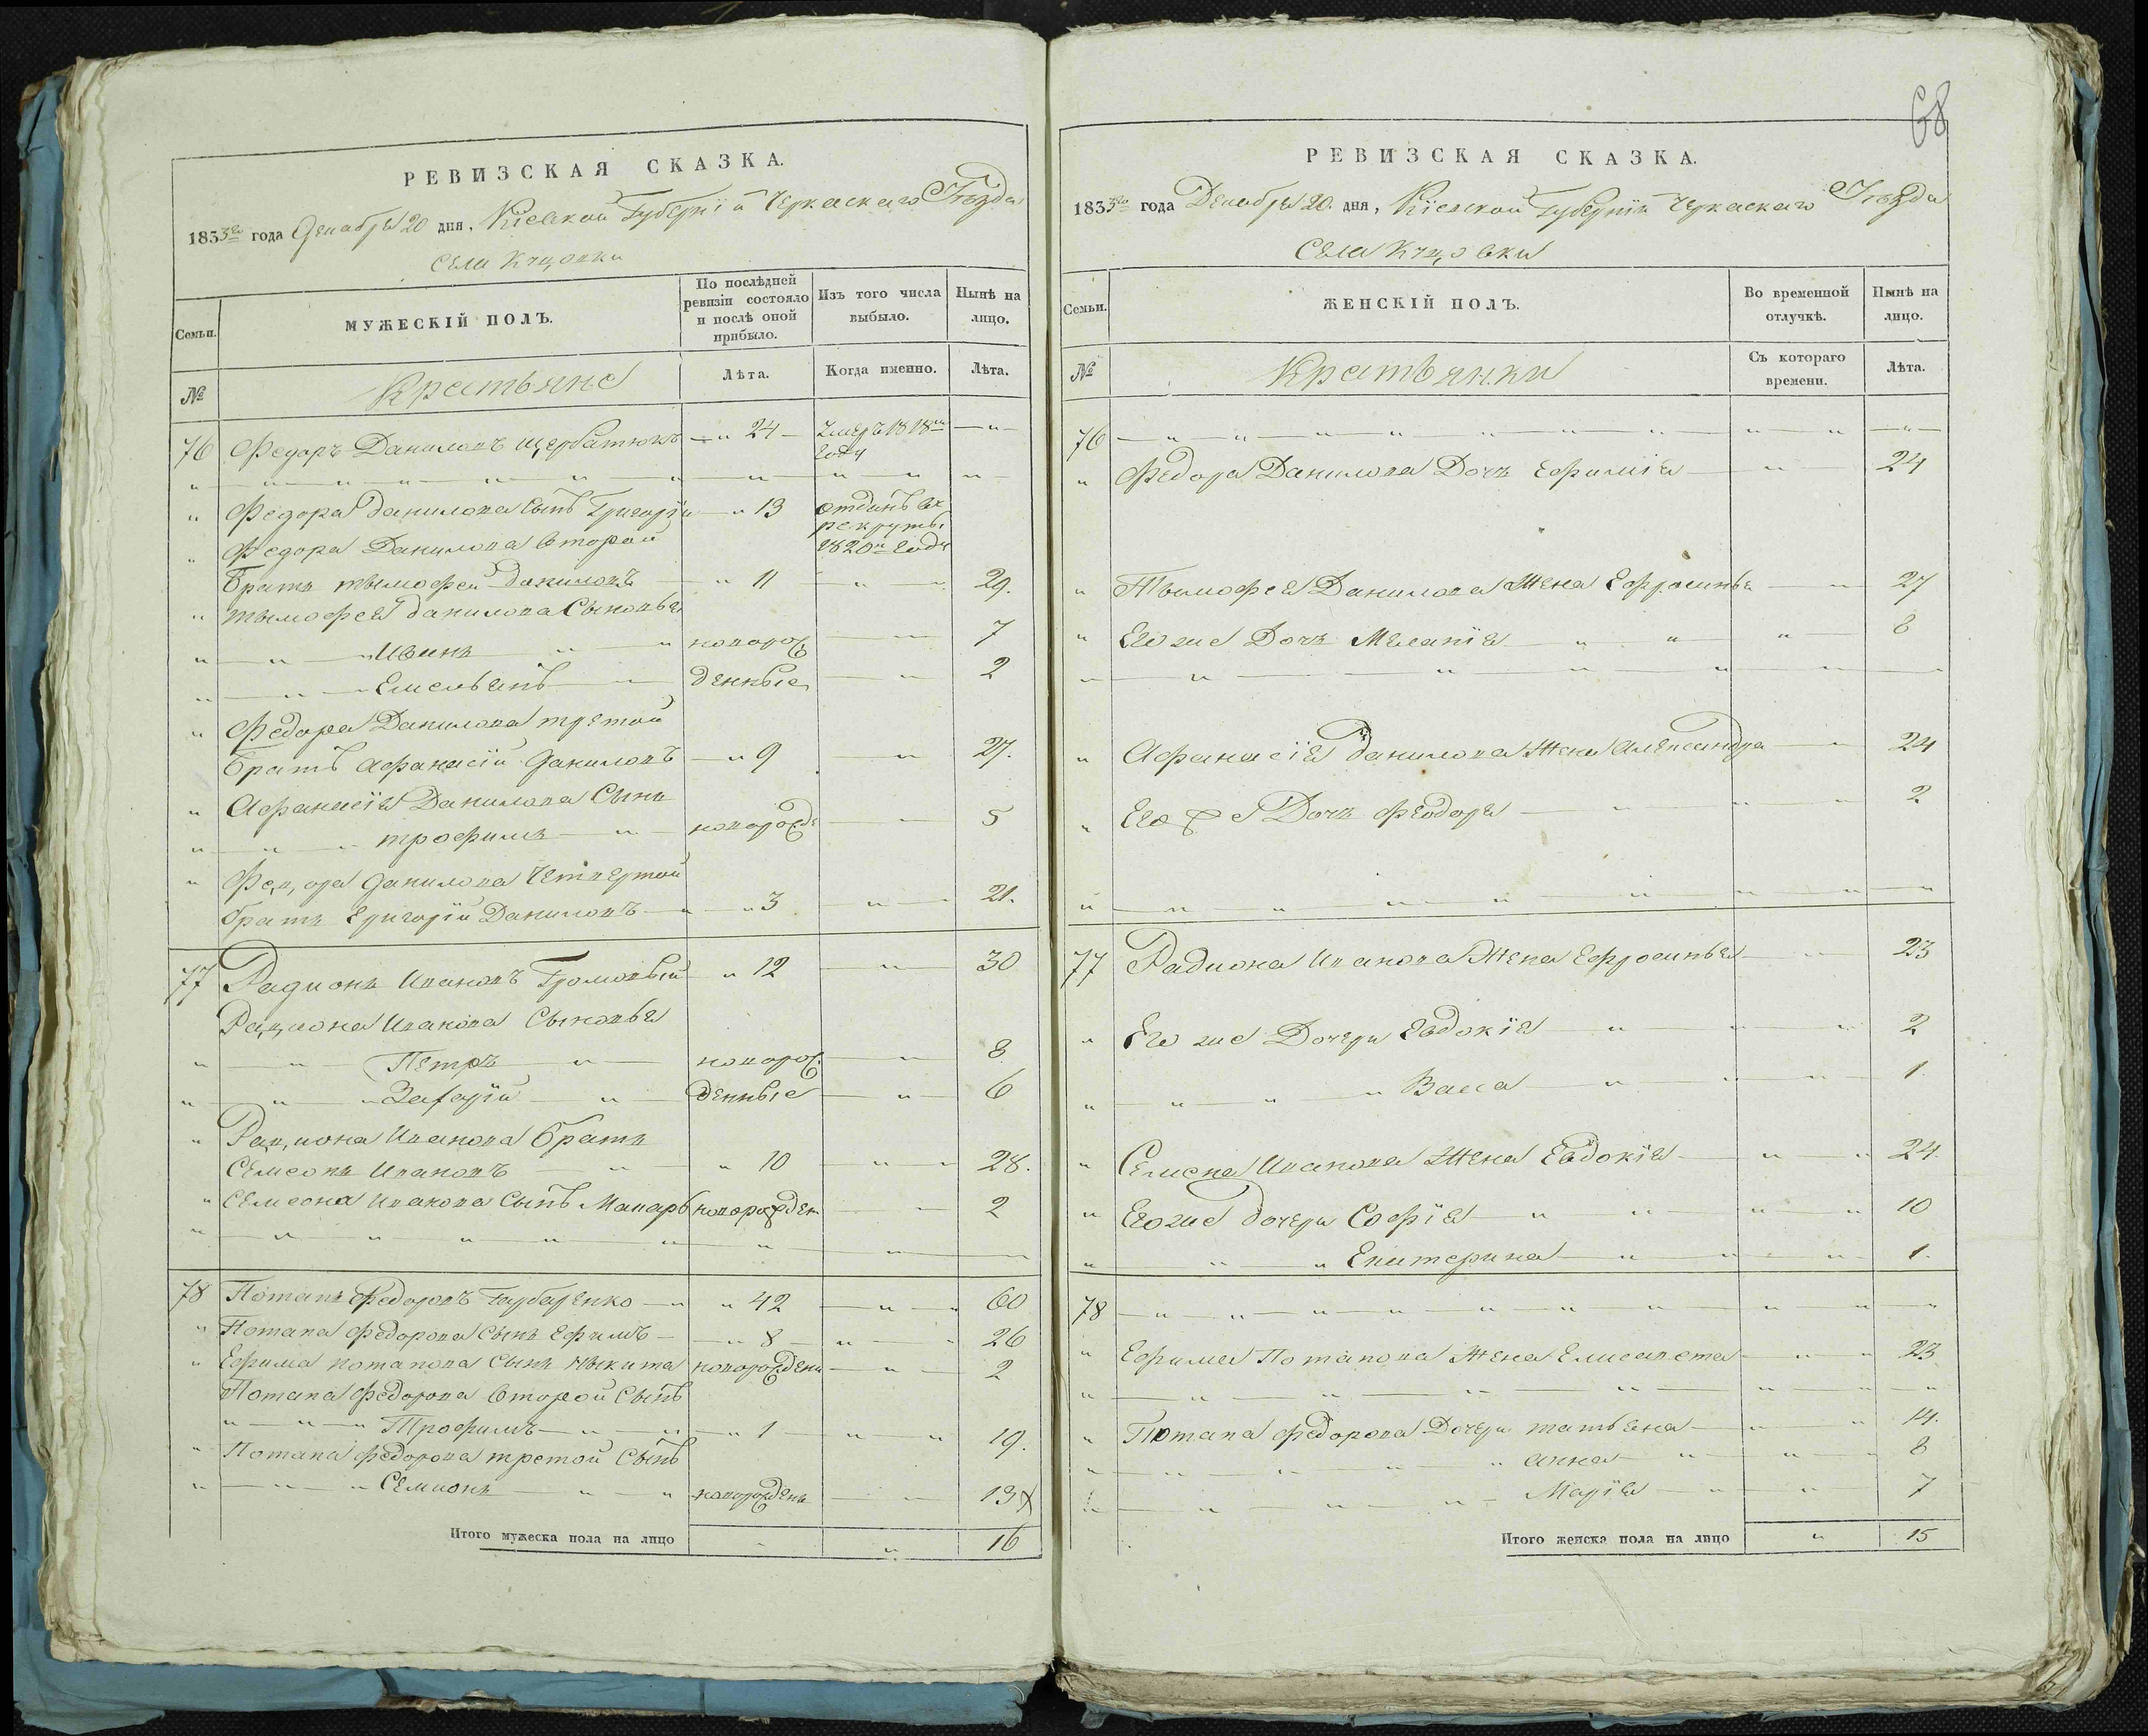 РЕВИЗСКАЯ СКАЗКА.
1833го года Декабря 20 дня, Кіевской Губерніи Черкаскаго Уѣзда
Села
Семьи.
МУЖЕСКІЙ ПОЛЪ.
По послѣдней ревизіи состояло и послѣ оной прибыло.
Изъ того числа выбыло.
Нынѣ на лицо.
№
Крестьяне
Лѣта.
Когда именно.
Лѣта.
76 Федоръ Даниловъ Щербатюкъ — " 24 — Умеръ 1818го — " —
году
" Федора Данилова Сынъ Григорій — " 13 отданъ въ
рекруты
" Федора Данилова второй 1820го году
Братъ тымофей Даниловъ — " 11 — " 29.
" тымофея Данилова Сыновья
" — " — " Иванъ " — " новорож — " 7
" — " — Емельянъ — " — денные — " — 2
" Федора Данилова третой
Братъ Афанасій Даниловъ — " 9 — " — 27.
" Афанасія Данилова Сынъ
" — " — " трофимъ — " — новорожде — " — 5
" Федора Данилова Четвертой
братъ Григорій Даниловъ — " — " 3 — " — 21.
77 Радионъ Ивановъ Громовый " 12 — " — 30
Радиона Иванова Сыновья
" — " — Петръ — " — новорож — " — 8
" — " — " Захарій — " — денные — " — 6
" Радиона Иванова братъ
Семеонъ Ивановъ — " " 10 — " — " 28.
" Семеона Иванова Сынъ Макаръ новорожден — " — 2
78 Потапъ Федоровъ — " " 42 — " — " 60
" Потапа Федорова Сынъ Ефимъ — — " 8 — " — " 26
" Ефима потапова Сынъ Никита новорожденн — " — 2
Потапа Федорова второй Сынъ
" — " — " Трофимъ — " — " — " 1 — " — " 19.
" Потапа Федорова третой Сынъ
" — " — " Семионъ — " — " новорожденъ — " — 13 х
Итого мужеска пола на лицо " " 16
68
РЕВИЗСКАЯ СКАЗКА.
1833го года Декабря 20. дня, Кіевской Губерніи Черкаскаго Уѣзда
Села
Семьи.
ЖЕНСКІЙ ПОЛЪ.
Во временной отлучкѣ.
Нынѣ на лицо.
№
Крестьянки
Съ котораго времени.
Лѣта.
76 — " — " — " — " — " — " — " —
" Федора Данилова Дочь Ефимія — " — 24
" Тымофея Данилова Жена Ефросинья — " — 27
" Его же Дочь Меланія — " — " — " 8
" Афанасія Данилова Жена Александра — " — 24
" Его же Дочь Феодора — " — " — " 2
77 Радиона Иванова Жена Ефросинья — " — 23
" Его же Дочери Евдокія — " — " — " 2
" — " — " — " Васса — " — " — " — 1
" Семена Иванова Жена Евдокія — " — " 24
" Его же дочери Софія — " — " — " — " 10
" — " — " Екатерина — " — " — " — 1.
78 — " — " — " — " — " — " — " —
" Ефима Потапова Жена Елисавета — " — " 23
" Потапа Федорова Дочери татьяна — " — " 14.
" — " — " — " — " анна — " — " — " 8
" — " — " — " — Марія — " — " — 7
Итого женска пола на лицо " 15